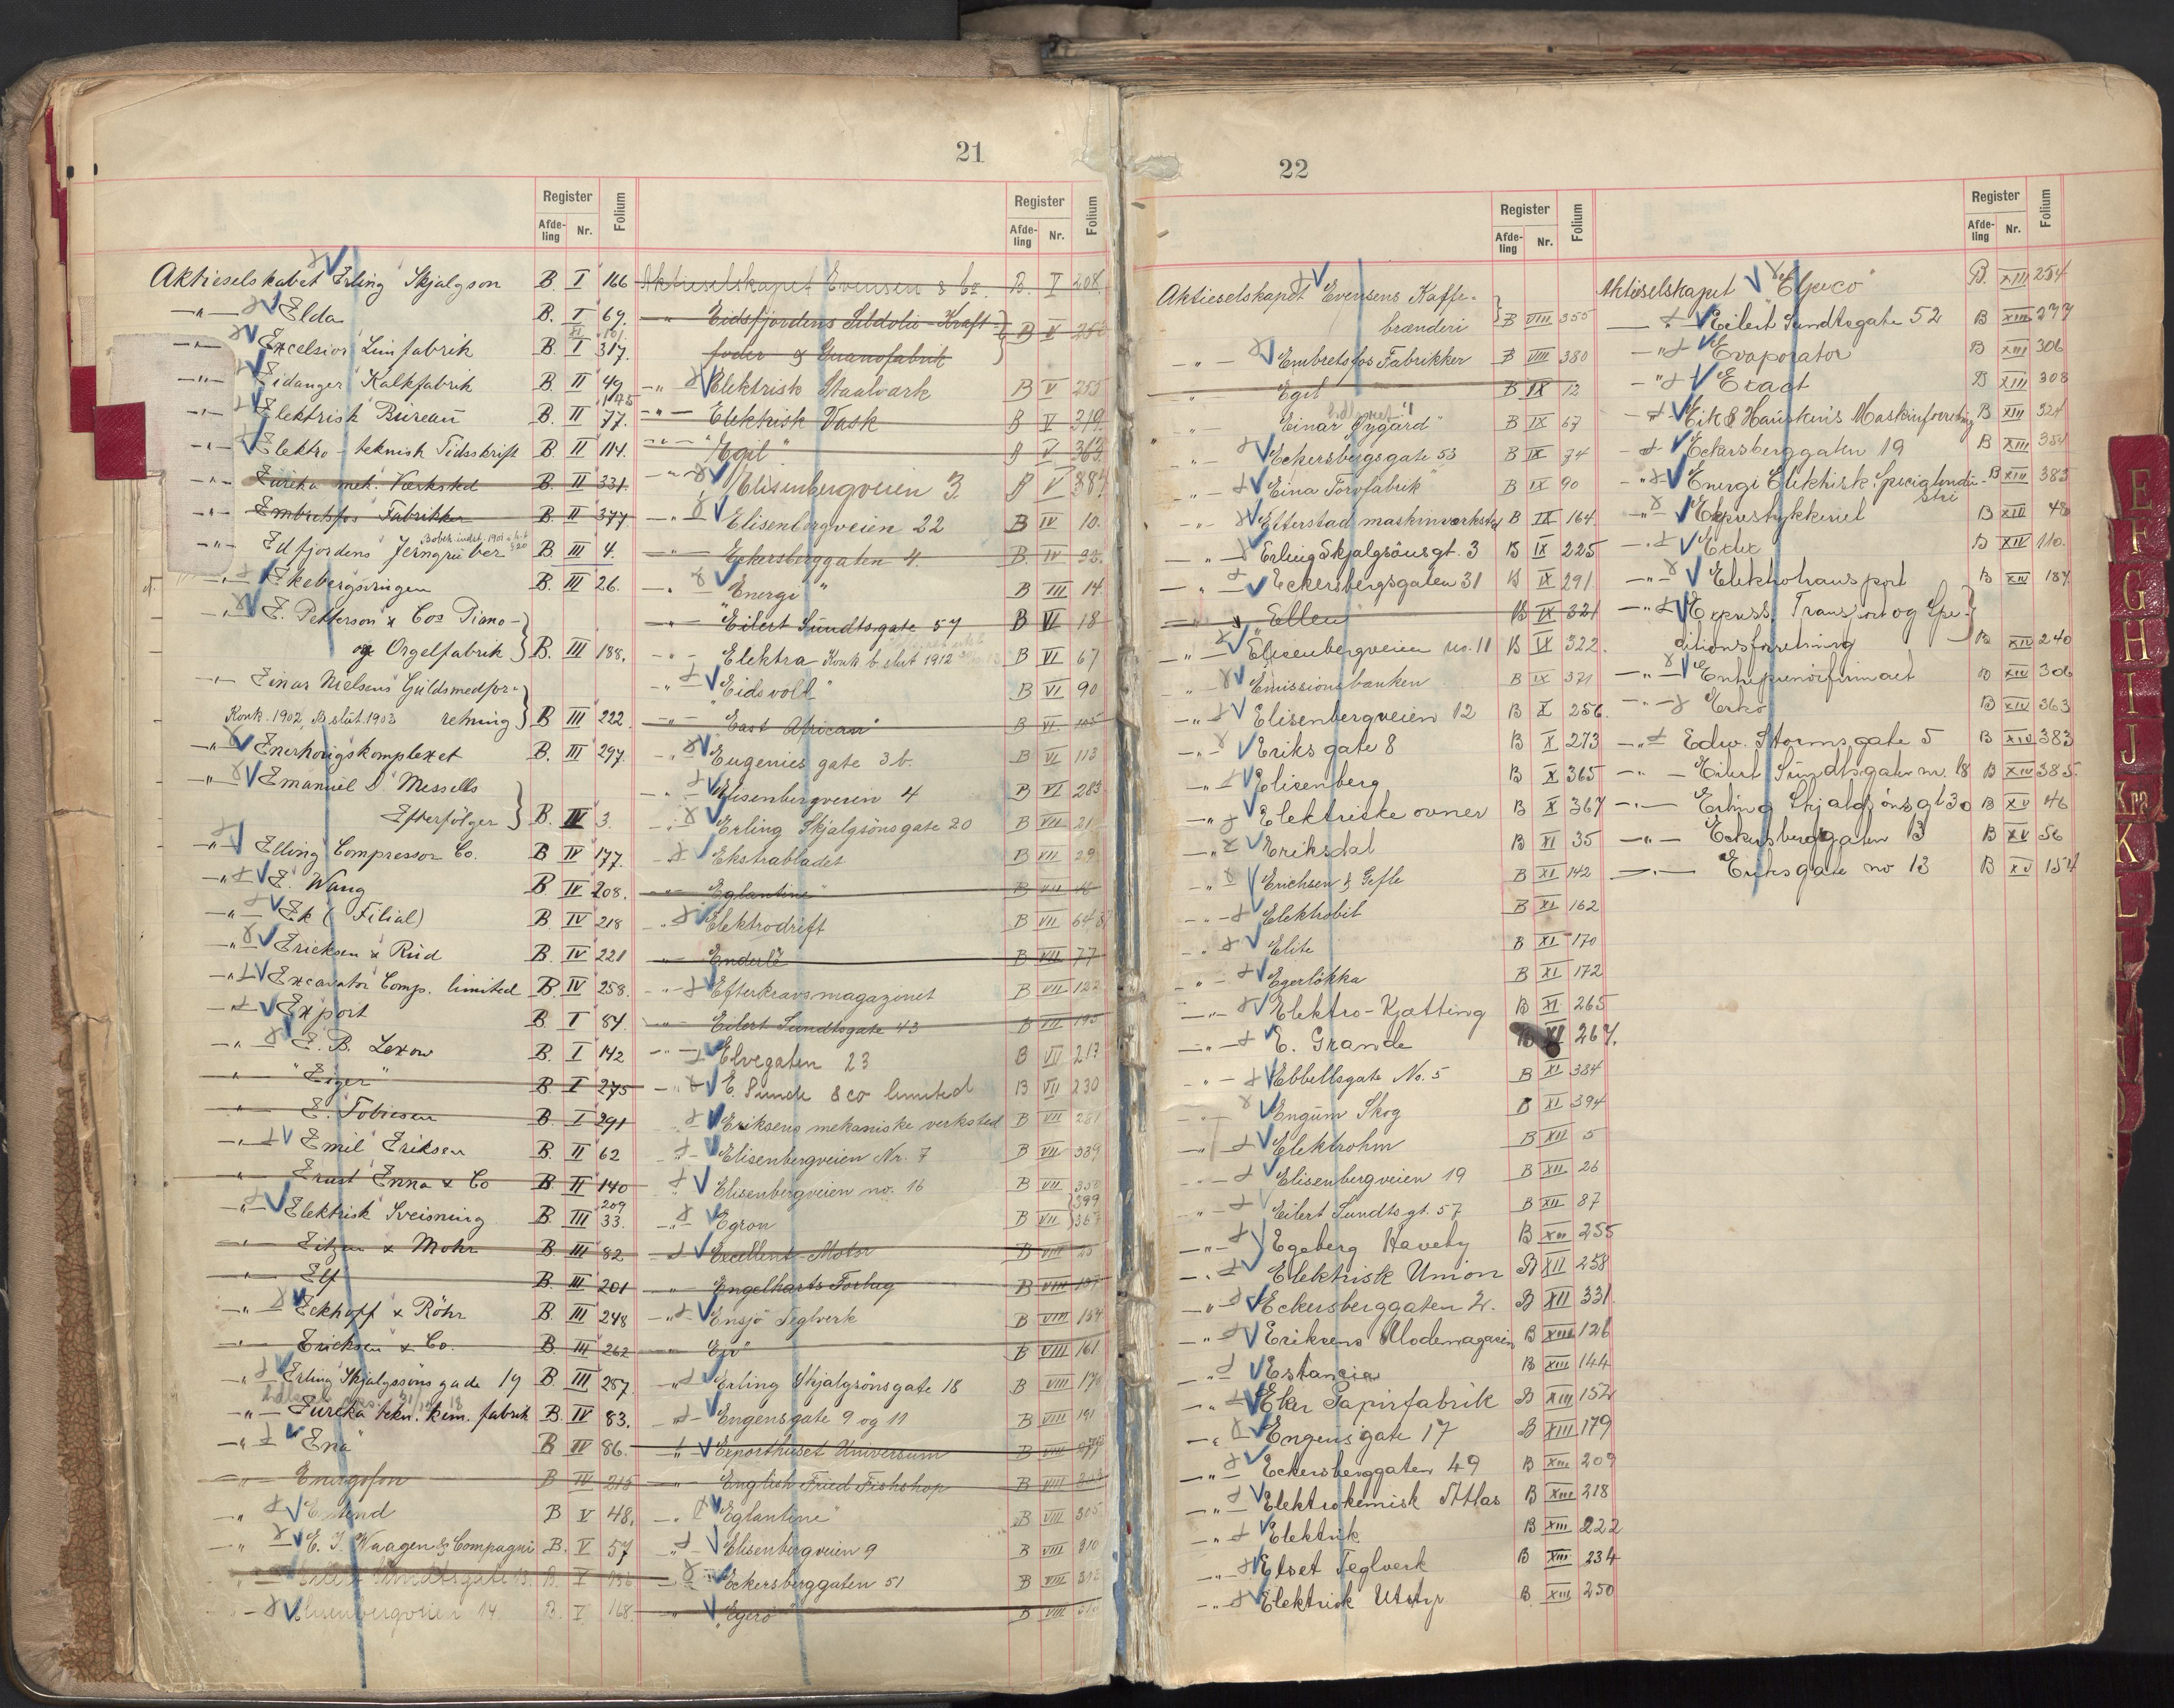 21
Register Folium
Afde-ling Nr.
Aktieselskabet Erling Skjalgson B. I 166
-"- Elda B. I 69.
-"- Excelsior Limfabrik B. I 317.
-"- Eidanger Kalkfabrik B. II 49
-"- Elektrisk Bureau B. II 77.
-"- Elektro-teknisk Tidsskrift B. II 114.
-"- Eureka mek. Værksted B. II 331.
-"- Embretsfos Fabrikker B. II 377
-"- Edfjordens Jerngruber B. III 4.
-"- Ekebergsvingen B. III 26.
-"- E. Petterson & Cos Piano-
og Orgelfabrik B. III 188.
-"- Einar Nielsens Guldsmedfor-
Konk. 1902, B. slut. 1903 retning B III 222
-"- Enerhougskomplexet B. III 297.
-"- Emanuel D Messells
Efterfölger B. IV 3.
-"- Elling Compressor Co. B IV 177.
-"- E. Wang B IV 208.
-"- Ek (Filial) B. IV 218
-"- Ericksen & Rud B. IV 221
-"- Excavator Comp. limited B. IV 258.
-"- Export B. I 84.
-"- E. B. Lexow B. I 142
-"- "Eiger" B. I 275
-"- E. Tobiesen B. I 291
-"- Emil Eriksen B. II 62
-"- Ernst Enna & Co B. II 140
209
-"- Elektrisk Sveisning B. III 33.
-"- Eitzen & Mohr B. III 82
-"- Elf B. III 201
-"- Eckhoff & Röhr B. III 248
-"- Ericksen & Co. B. III 262
-"- Erling Skjalgssöns gade 19 B. III 287.
-"- Eureka tekn. kem. fabrik B. IV 83.
-"- "Ena" B IV 86.
-"- Energofon B IV 215
-"- Estend B V 48.
-"- E. J. Waagen & Compagni B. V 57
-"- Eilert Sundtsgate B. V
-"- Elisenbergveien 14 B. V 168
Register Folium
Afde-ling Nr.
Aktieselskapet Evensen & Co. B. V 208.
-"- Eidsfjordens Sildolie-Kraft-
foder & Guanofabrik B V 250
-"- Elektrisk Staalværk B V 255
-"- Elektrisk Vask B V 319.
-"- "Egil" B V 363.
-"- Elisenbergveien 3. B V 387
-"- Elisenbergveien 22 B IV 10.
-"- Eckersberggaten 4. B. IV 93.
-"- "Energi" B III 14
-"- Eilert Sundtsgate 57 B VI 18
-"- Elektra Konk b. slut 1912 B VI 67
-"- "Eidsvold" B VI 90
-"- "East African" B VI 105
-"- Eugenies gate 3b. B VI 113
-"- Elisenbergveien 4 B VI 283
-"- Erling Skjalgsönsgate 20 B VII 21
-"- Ekstrabladet B VII 29
-"- "Eglantine" B VII
-"- Elektrodrift B VII 64
-"- Enderlé B VII 77
-"- Efterkravsmagazinet B VII 122
-"- Eilert Sundtsgate 43 B VII 195
-"- Elvegaten 23 B VII 217
-"- E. Sunde & co limited B VII 230
-"- Eriksens mekaniske verksted B VII 281
-"- Elisenbergveien Nr. 7 B VII 339
-"- Elisenbergveien no. 16 B VII 350
399
-"- Egron B VII 367
-"- Excellent-Motor B VIII 25
-"- Engelharts Forlag B VIII 137
-"- Ensjö Teglverk B VIII 154
-"- "Ev" B VIII 161
-"- Erling Skjalgsönsgate 18 B VIII 170
-"- Engensgate 9 og 11 B VIII 191
-"- Exporthuset Universum B VIII
-"- English Fried Fishshop B VIII
-"- "Eglantine" B VIII 305
-"- Elisenbergveien 9 B VIII 310
-"- Eckersberggaten 51 B VIII 312
-"- "Egerö" B VIII
22
Register Folium
Afde-ling Nr.
Aktieselskapet Evensens Kaffe-
brænderi B VIII 355
-"- Embretsfos Fabrikker B VIII 380
-"- Egil B IX 12
-"- Einar Nygård B IX 67
-"- Eckersbergsgate 53 B IX 74
-"- Eina Torvfabrik B IX 90
-"- Etterstad maskinverksted B IX 164
-"- Erling Skjalgsönsgt. 3 B IX 225
-"- Eckersbergsgaten 31 B IX 291
-"- "Ellen" B IX 321
-"- Elisenbergveien no. 11 B IX 322.
-"- Emissionsbanken B IX 371
-"- Elisenbergveien 12 B X 256.
-"- Eriks gate 8 B X 273
-"- Elisenberg B X 365
-"- Elektriske ovner B X 367
-"- Eriksdal B XI 35
-"- Erichsen & Gefle B XI 142
-"- Elektrobit B XI 162
-"- Elite B XI 170
-"- Egerlökka B XI 172
-"- Elektro-Kjætting B XI 265
-"- E. Grande B XI 267.
-"- Ebbellsgate No. 5 B XI 384
-"- Engum Skog B XI 394
-"- Elektrohm B XII 5
-"- Elisenbergveien 19 B XII 26
-"- Eilert Sundtsgt. 57 B XII 87
-"- Egeberg Haveby B XII 255
-"- Elektrisk Union B XII 258
-"- Eckersberggaten 2. B XII 331
-"- Eriksens Modemagasin B XIII 126
-"- Estancia B XIII 144
-"- Eker Papirfabrik B XIII 152
-"- Engensgate 17 B XIII 179
-"- Eckersberggaten 49 B XIII 209
-"- Elektrokemisk Atlas B XIII 218
-"- Elektrik B XIII 222
-"- Elset Teglverk B XIII 234
-"- Elektrisk Utstyr B. XIII 250
Register Folium
Afde-ling Nr.
Aktieselskapet "Elpeco" B. XIII 254
-"- Eilert Sundtsgate 52 B XIII 277
-"- Evaporator B XIII 306
-"- Exact B XIII 308
-"- Eik & Hausken's Maskinforretning B XIII 324
-"- Eckersberggaten 19 B XIII 354
-"- Energi Elektrisk Specialindu-
stri B XIII 383
-"- Ekspresstykkeriet B XIV 48
-"- Exlex B XIV 110.
-"- Elektrotransport B XIV 187
-"- Express Transport og Spe-
ditionsforretning B XIV 240
-"- Entreprenörfirmaet B XIV 306
-"- Erko B XIV 363
-"- Edv. Stormsgate 5 B XIV 383
-"- Eilert Sundtsgaten nr. 18 B XIV 385
-"- Erling Skjalgsönsgt 30 B XV 46
-"- Eckersberggaten 13 B XV 56
-"- Eriksgate no 13 B XV 154
E
F
G
H
I
J
K
L